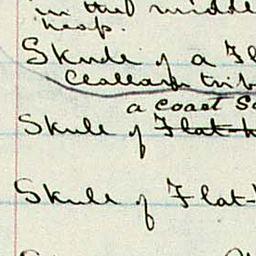 in the middle
heap.
Skull of a Fl
Clallam trib
a coast Sa
Skull of Flat-h
Skull of Flat-